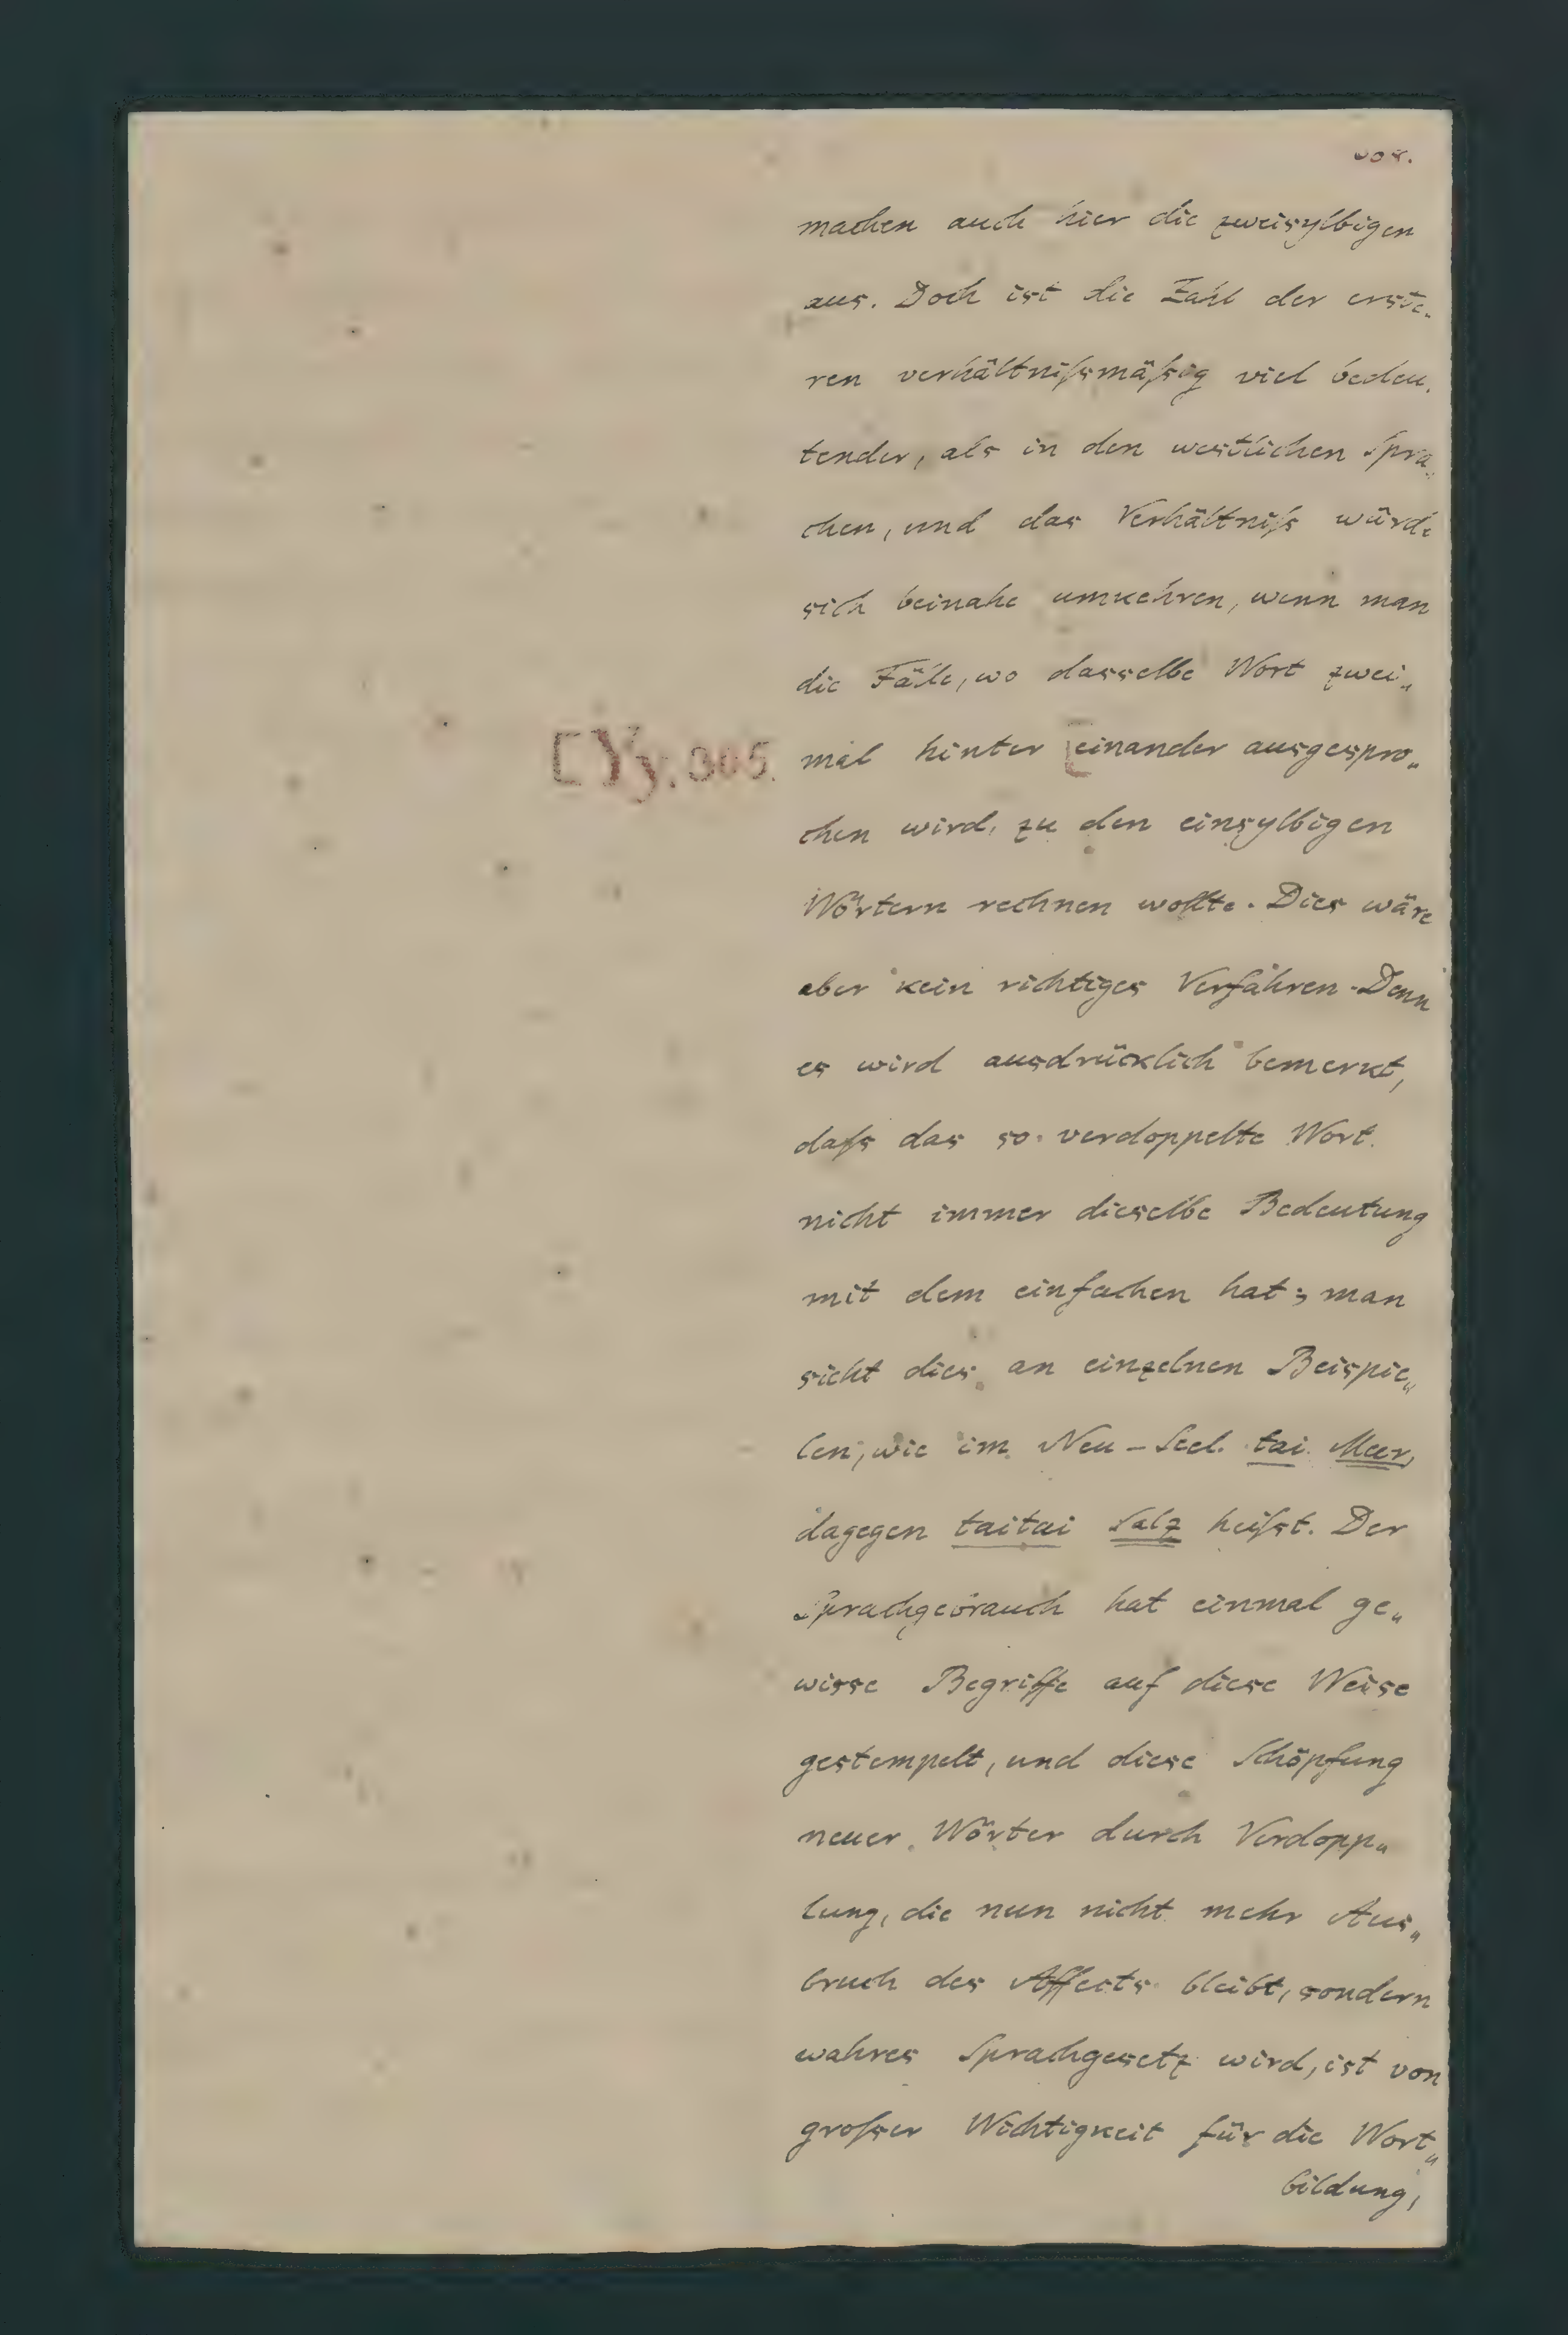 machen auch hier die zweisylbigen
aus. Doch ist die Zahl der erste„
ren verhältnißsmäßsig viel bedeu„
tender, als in den westlichen Spra„
chen, und das Verhältniß würde
sich beinahe umkehren, wenn man
die Fälle, wo dasselbe Wort zwei„
[Yy. 305.
mal hinter [einander ausgespro„
chen wird, zu den einsylbigen
Wörtern rechnen wollte. Dies wäre
aber kein richtiges Verfahren. Denn
es wird ausdrücklich bemerkt,
daß das so verdoppelte Wort
nicht immer dieselbe Bedeutung
mit dem einfachen hat; man
sieht dies an einzelnen Beispie„
len, wie im Neu-Seel. tai Meer,
dagegen taitai Salz heißt. Der
Sprachgebrauch hat einmal ge„
wisse Begriffe auf diese Weise
gestempelt, und diese Schöpfung
neuer Wörter durch Verdopp„
lung, die nun nicht mehr Aus„
bruch des Affects bleibt, sondern
wahres Sprachgesetz wird, ist von
großer Wichtigkeit für die Wort„
bildung,